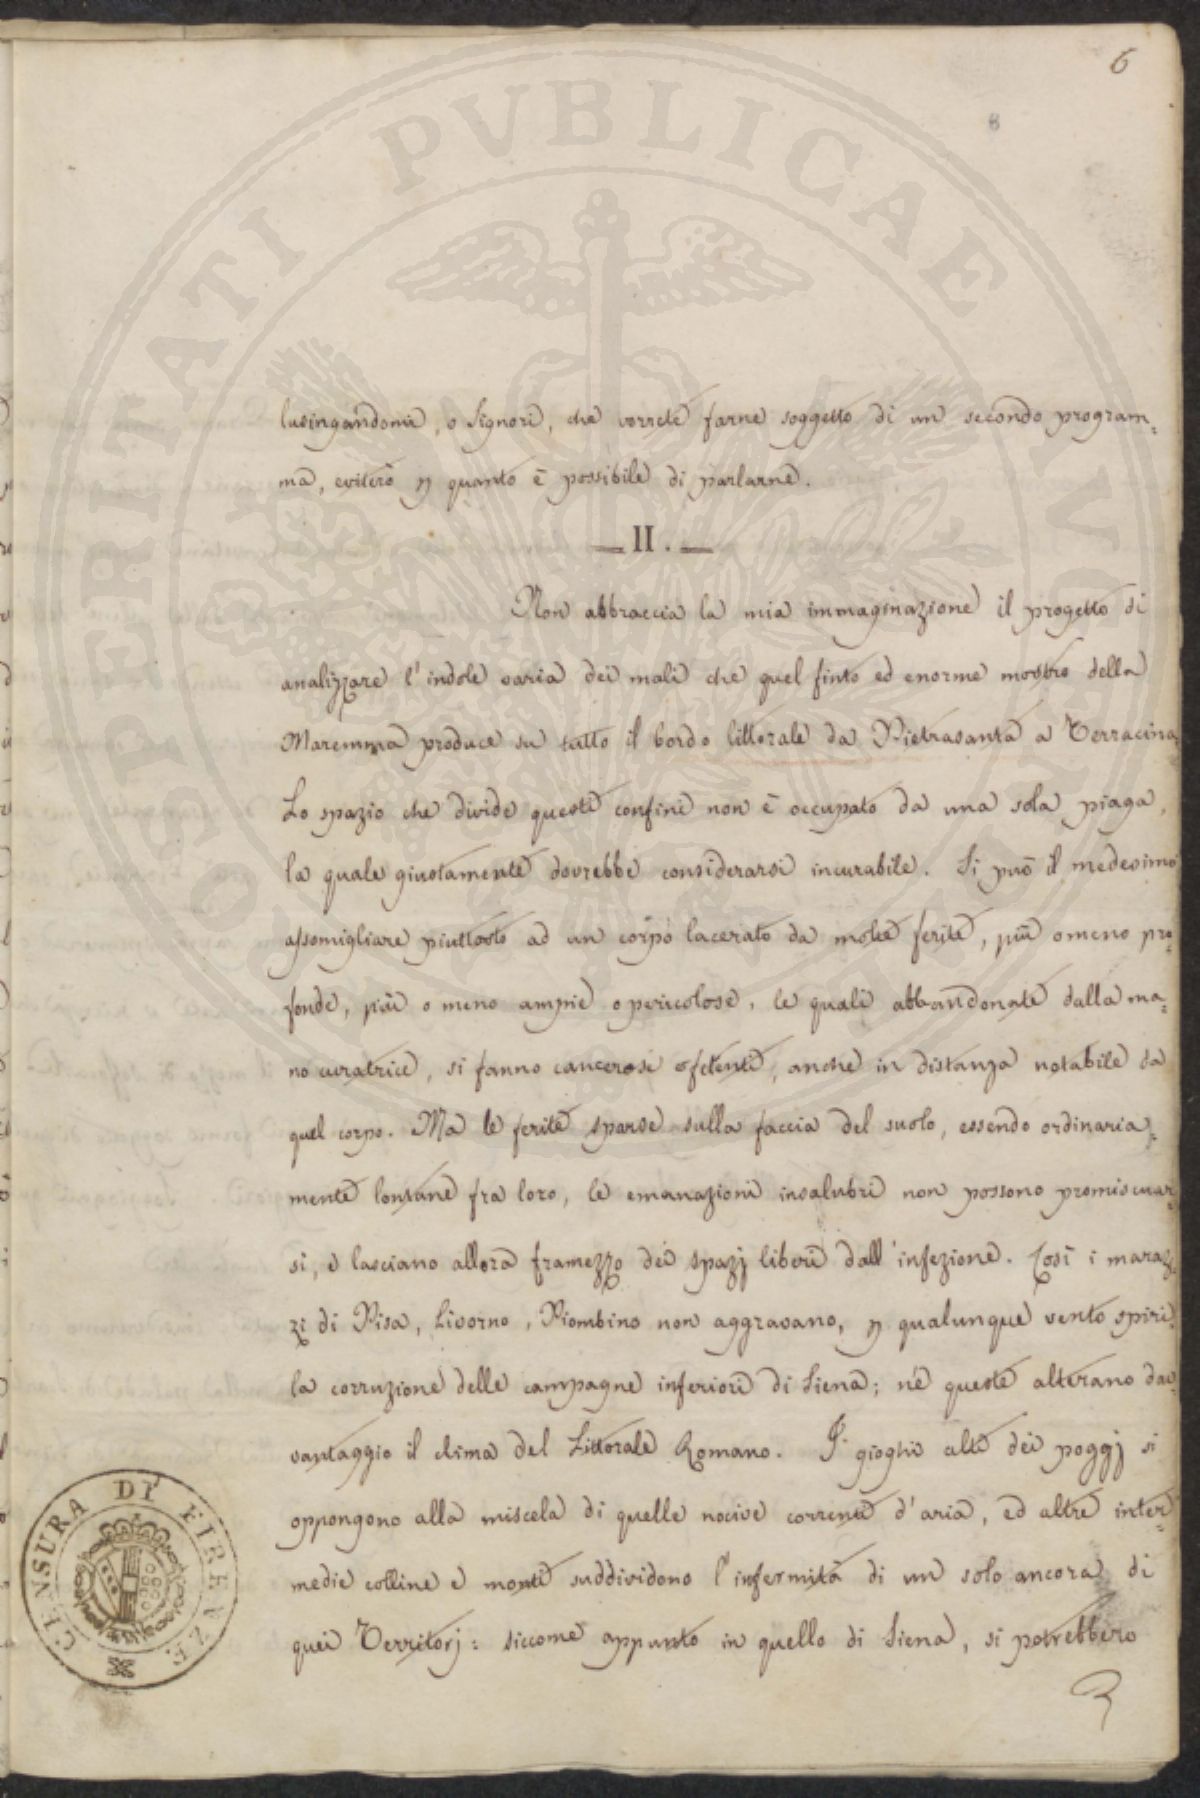 6
8
lusingandomi, o Signori, che vorrete farne soggetto di un secondo program=
ma, eviterò p quanto è possibile di parlarne.
— II. —
Non abbraccia la mia immaginazione il progetto di
analizzare l'indole varia dei mali che quel finto ed enorme mostro della
Maremma produce su tutto il bordo littorale da Pietrasanta a Terracina.
Lo spazio che divide questi confini non è occupato da una sola piaga,
la quale giustamente dovrebbe considerarsi incurabile. Si può il medesimo
assomigliare piuttosto ad un corpo lacerato da molte ferite, più o meno pro=
fonde, più o meno ampie o pericolose, le quali abbandonate dalla ma=
no curatrice, si fanno cancerose e fetenti, anche in distanza notabile da
quel corpo. Ma le ferite sparse sulla faccia del suolo, essendo ordinaria=
mente lontane fra loro, le emanazioni insalubri non possono promiscuar=
si, e lasciano allora framezzo dei spazj liberi dall'infezione. Così i maraz=
zi di Pisa, Livorno, Piombino non aggravano, p qualunque vento spiri,
la corruzione delle campagne inferiori di Siena; nè queste alterano dav=
vantaggio il clima del Littorale Romano. I gioghi alti dei poggj si
oppongono alla miscela di quelle nocive correnti d'aria, ed altre inter=
medie colline e monti suddividono l'infermità di un solo ancora di
quei Territorj: siccome appunto in quello di Siena, si potrebbero
CENSURA DI FIRENZE
PROSPERITATI PVBLICAE AVGENDAE